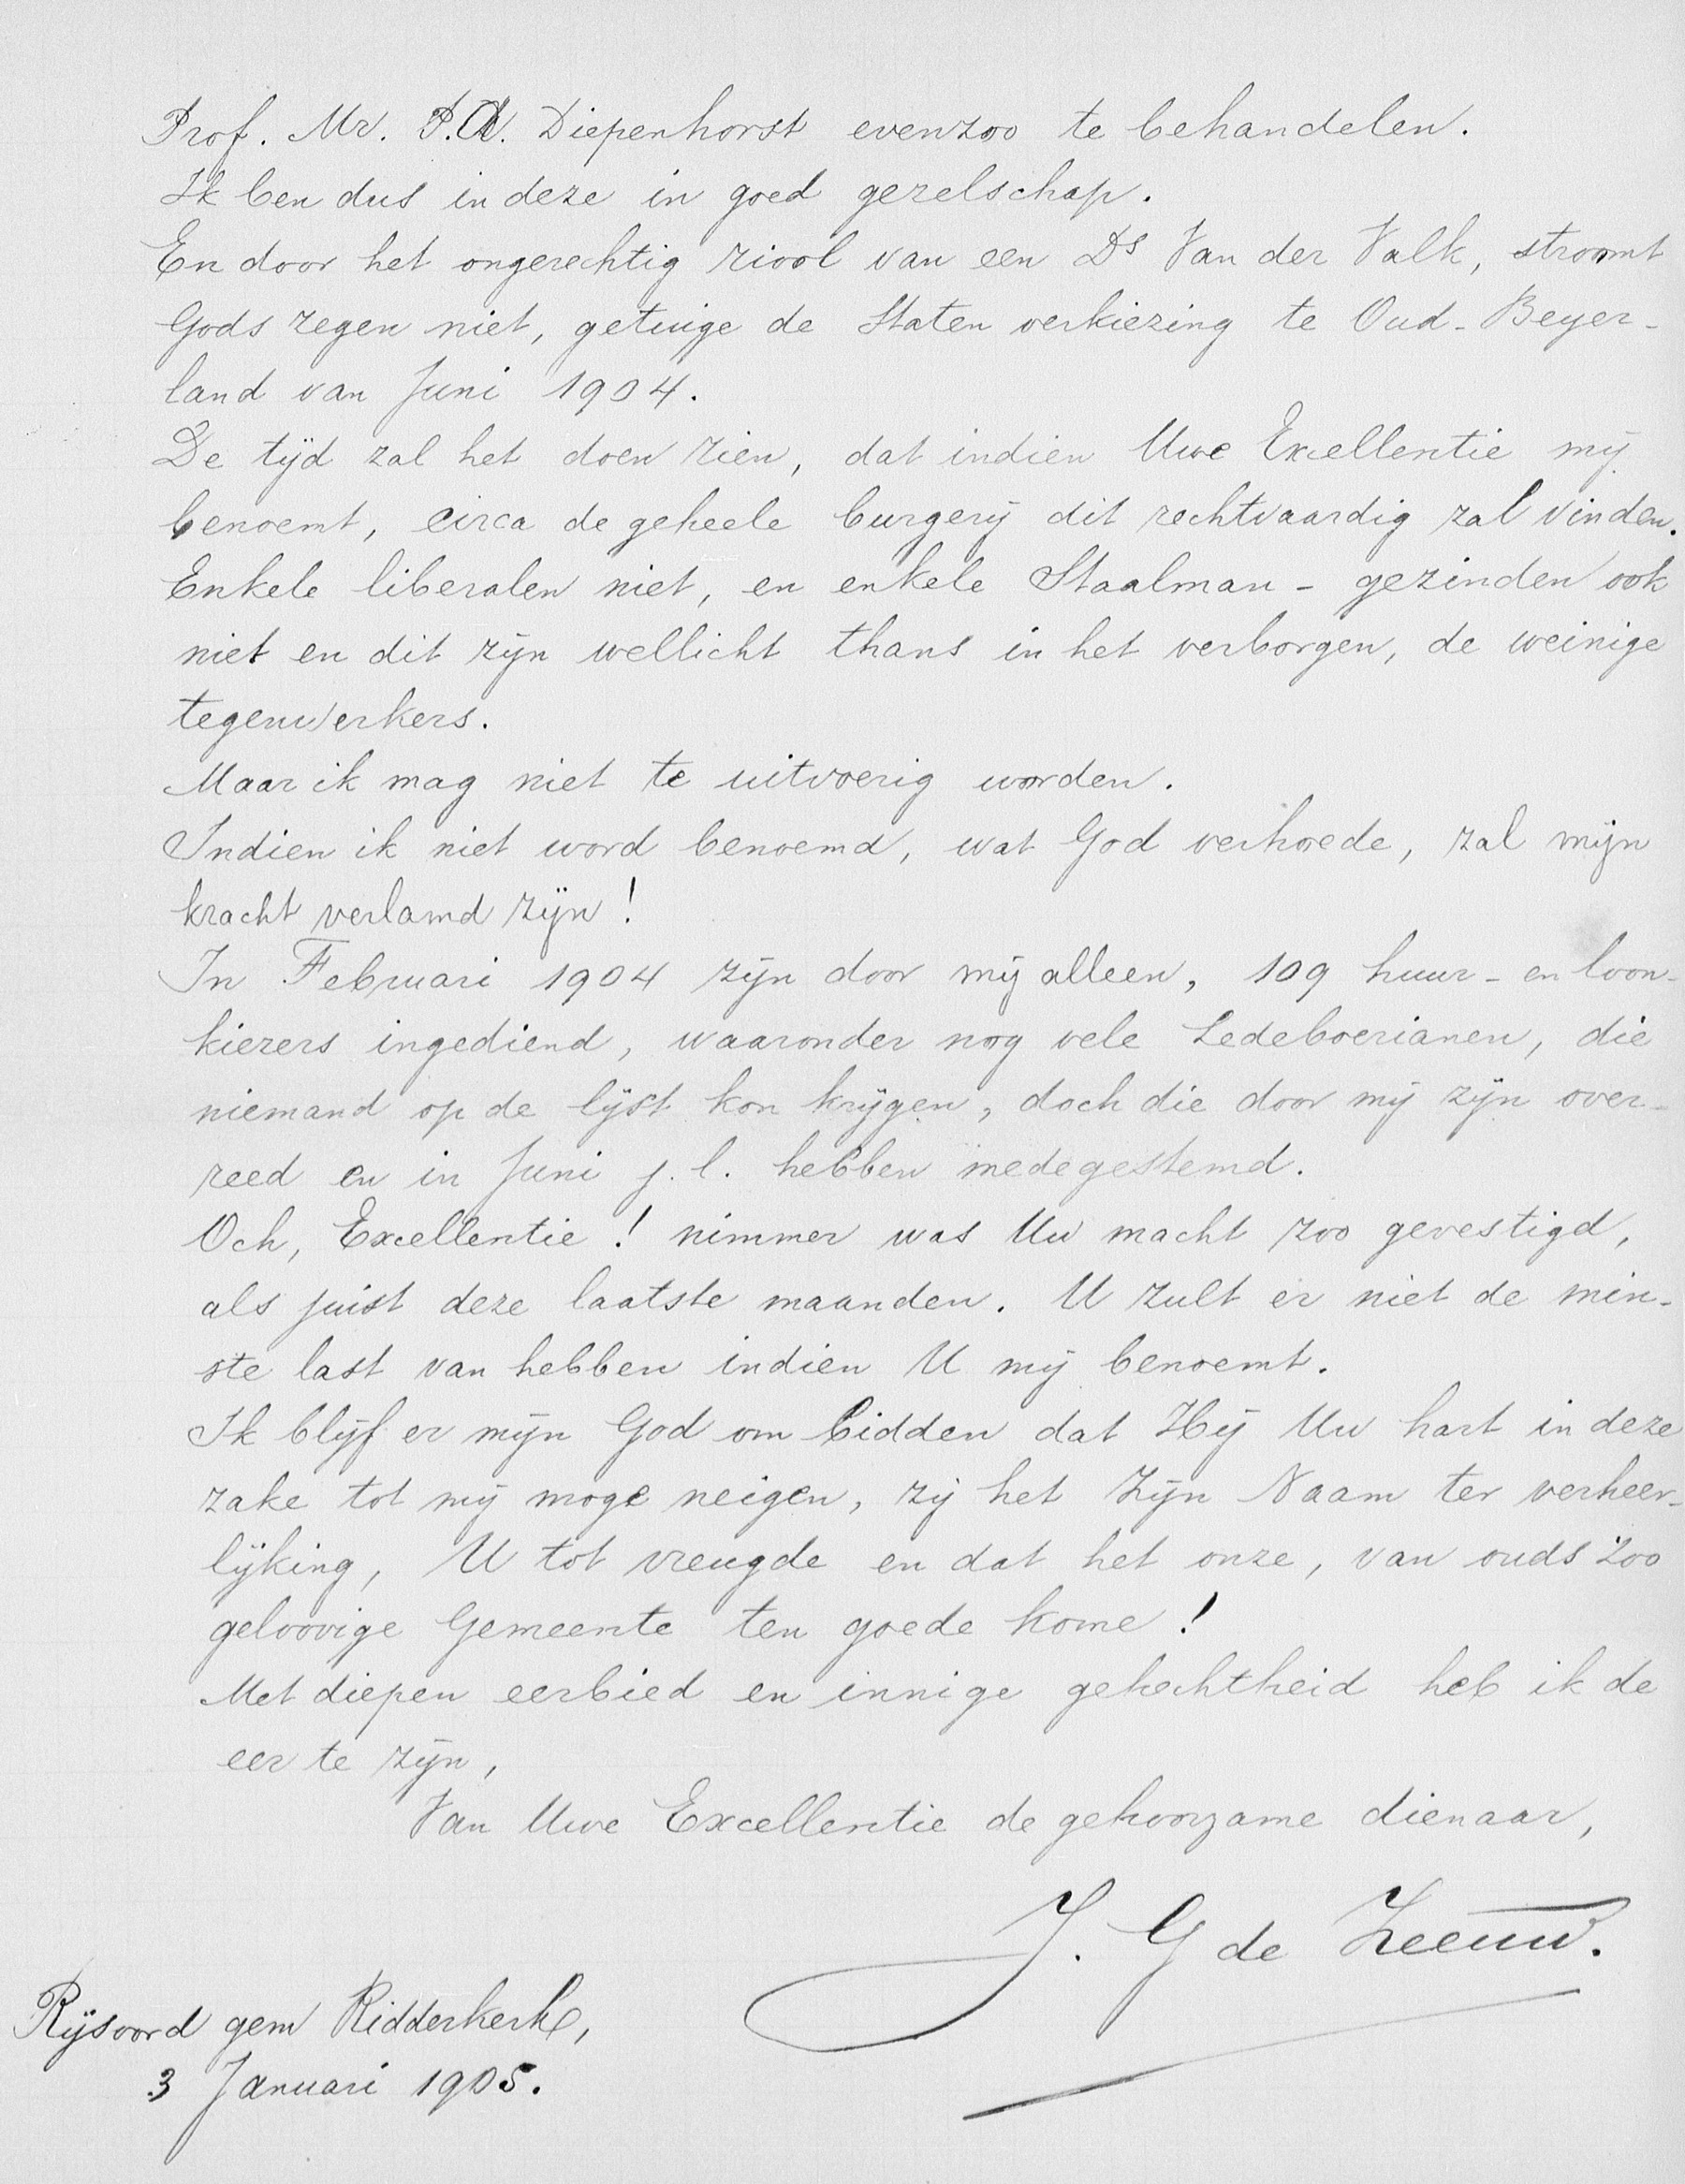 Prof. Mr. P.A. Diepenhorst evenzoo te behandelen.
Ik ben dus in deze in goed gezelschap.
En door het ongerechtig riool van een Ds Van der Valk, stroomt
Gods zegen niet, getuige de Staten verkiezing te Oud-Beyer-
land van Juni 1904.
De tijd zal het doen zien, dat indien Uwe Excellentie mij
benoemt, circa de geheele burgerij dit rechtvaardig zal vinden.
Enkele liberalen niet, en enkele Staalman-gezinden ook
niet en dit zijn wellicht thans in het verborgen, de weinige
tegenwerkers.
Maar ik mag niet te uitvoerig worden.
Indien ik niet word benoemd, wat God verhoede, zal mijn
kracht verlamd zijn!
In Februari 1904 zijn door mij alleen, 109 huur- en loon-
kiezers ingediend, waaronder nog vele Ledeboerianen, die
niemand op de lijst kon krijgen, doch die door mij zijn over-
reed en in Juni j.l. hebben medegestemd.
Och, Excellentie! nimmer was Uw macht zoo gevestigd,
als juist deze laatste maanden. U zult er niet de min-
ste last van hebben indien U mij benoemt.
Ik blijf er mijn God om bidden dat Hij Uw hart in deze
zake tot mij moge neigen, zij het Zijn Naam ter verheer-
lijking, U tot vreugde en dat het onze, van ouds zoo
geloovige Gemeente ten goede kome!
Met diepen eerbied en innige gehechtheid heb ik de
eer te zijn,
Van Uwe Excellentie de gehoorzame dienaar,
J. G de Zeeuw.
Rijsoord gem Ridderkerk,
3 Januari 1905.